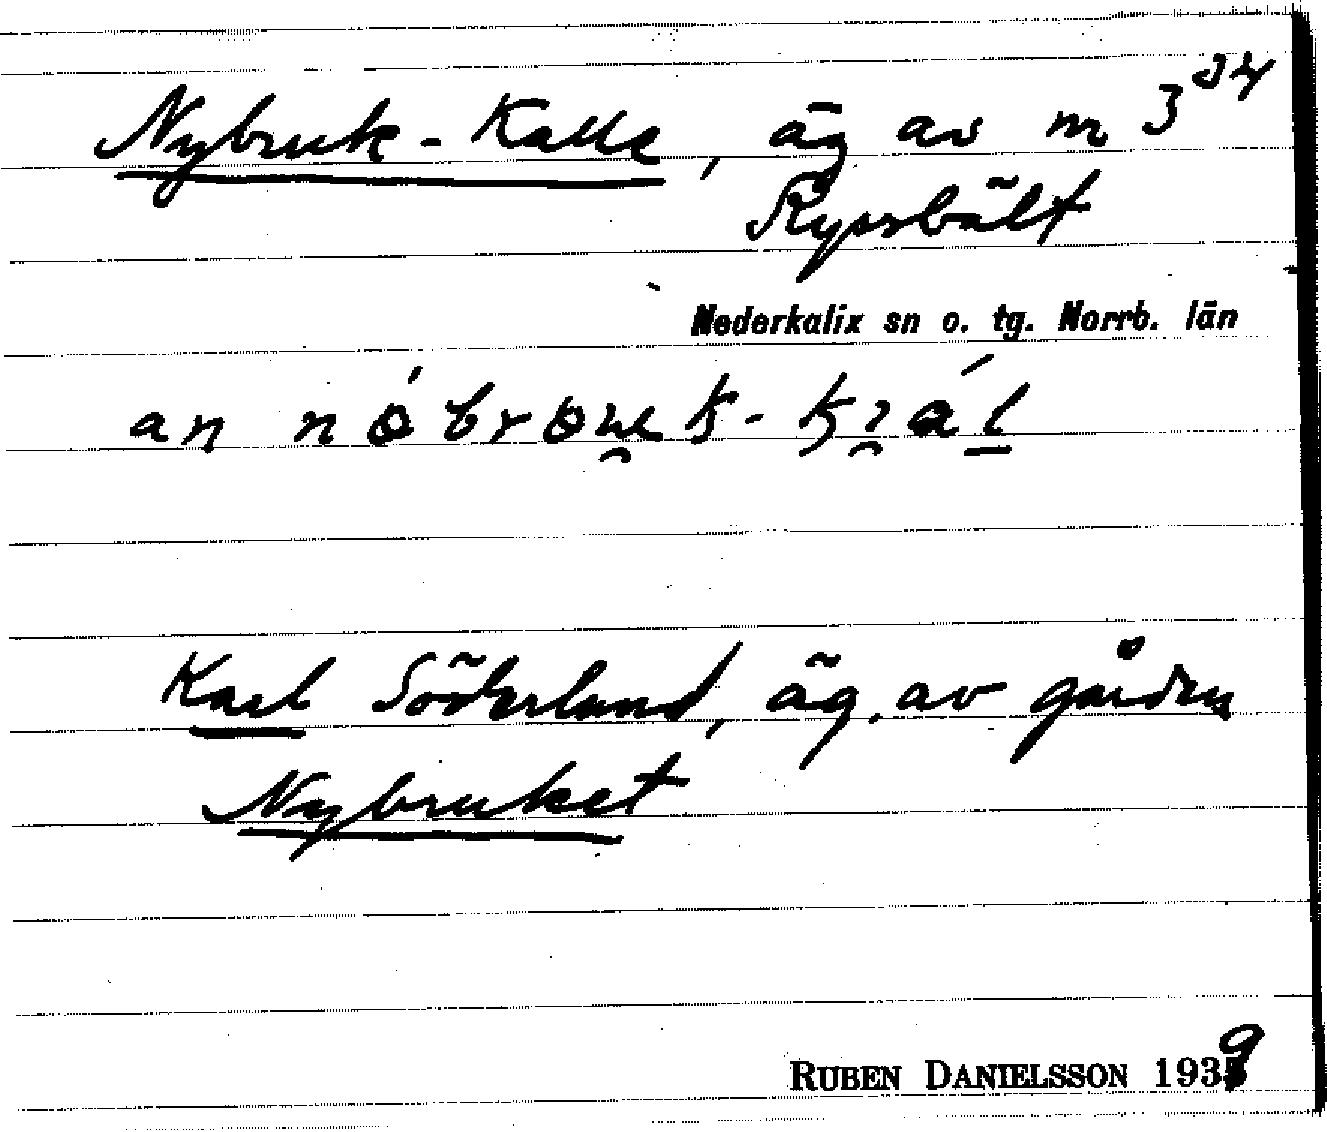 Nybruk-Kalle, äg av nr 3³⁴
Ryssbält
Nederkalix sn o. tg. Norrb. län
an
Karl Söderlund, äg. av gården
Nybruket
RUBEN DANIELSSON 1939